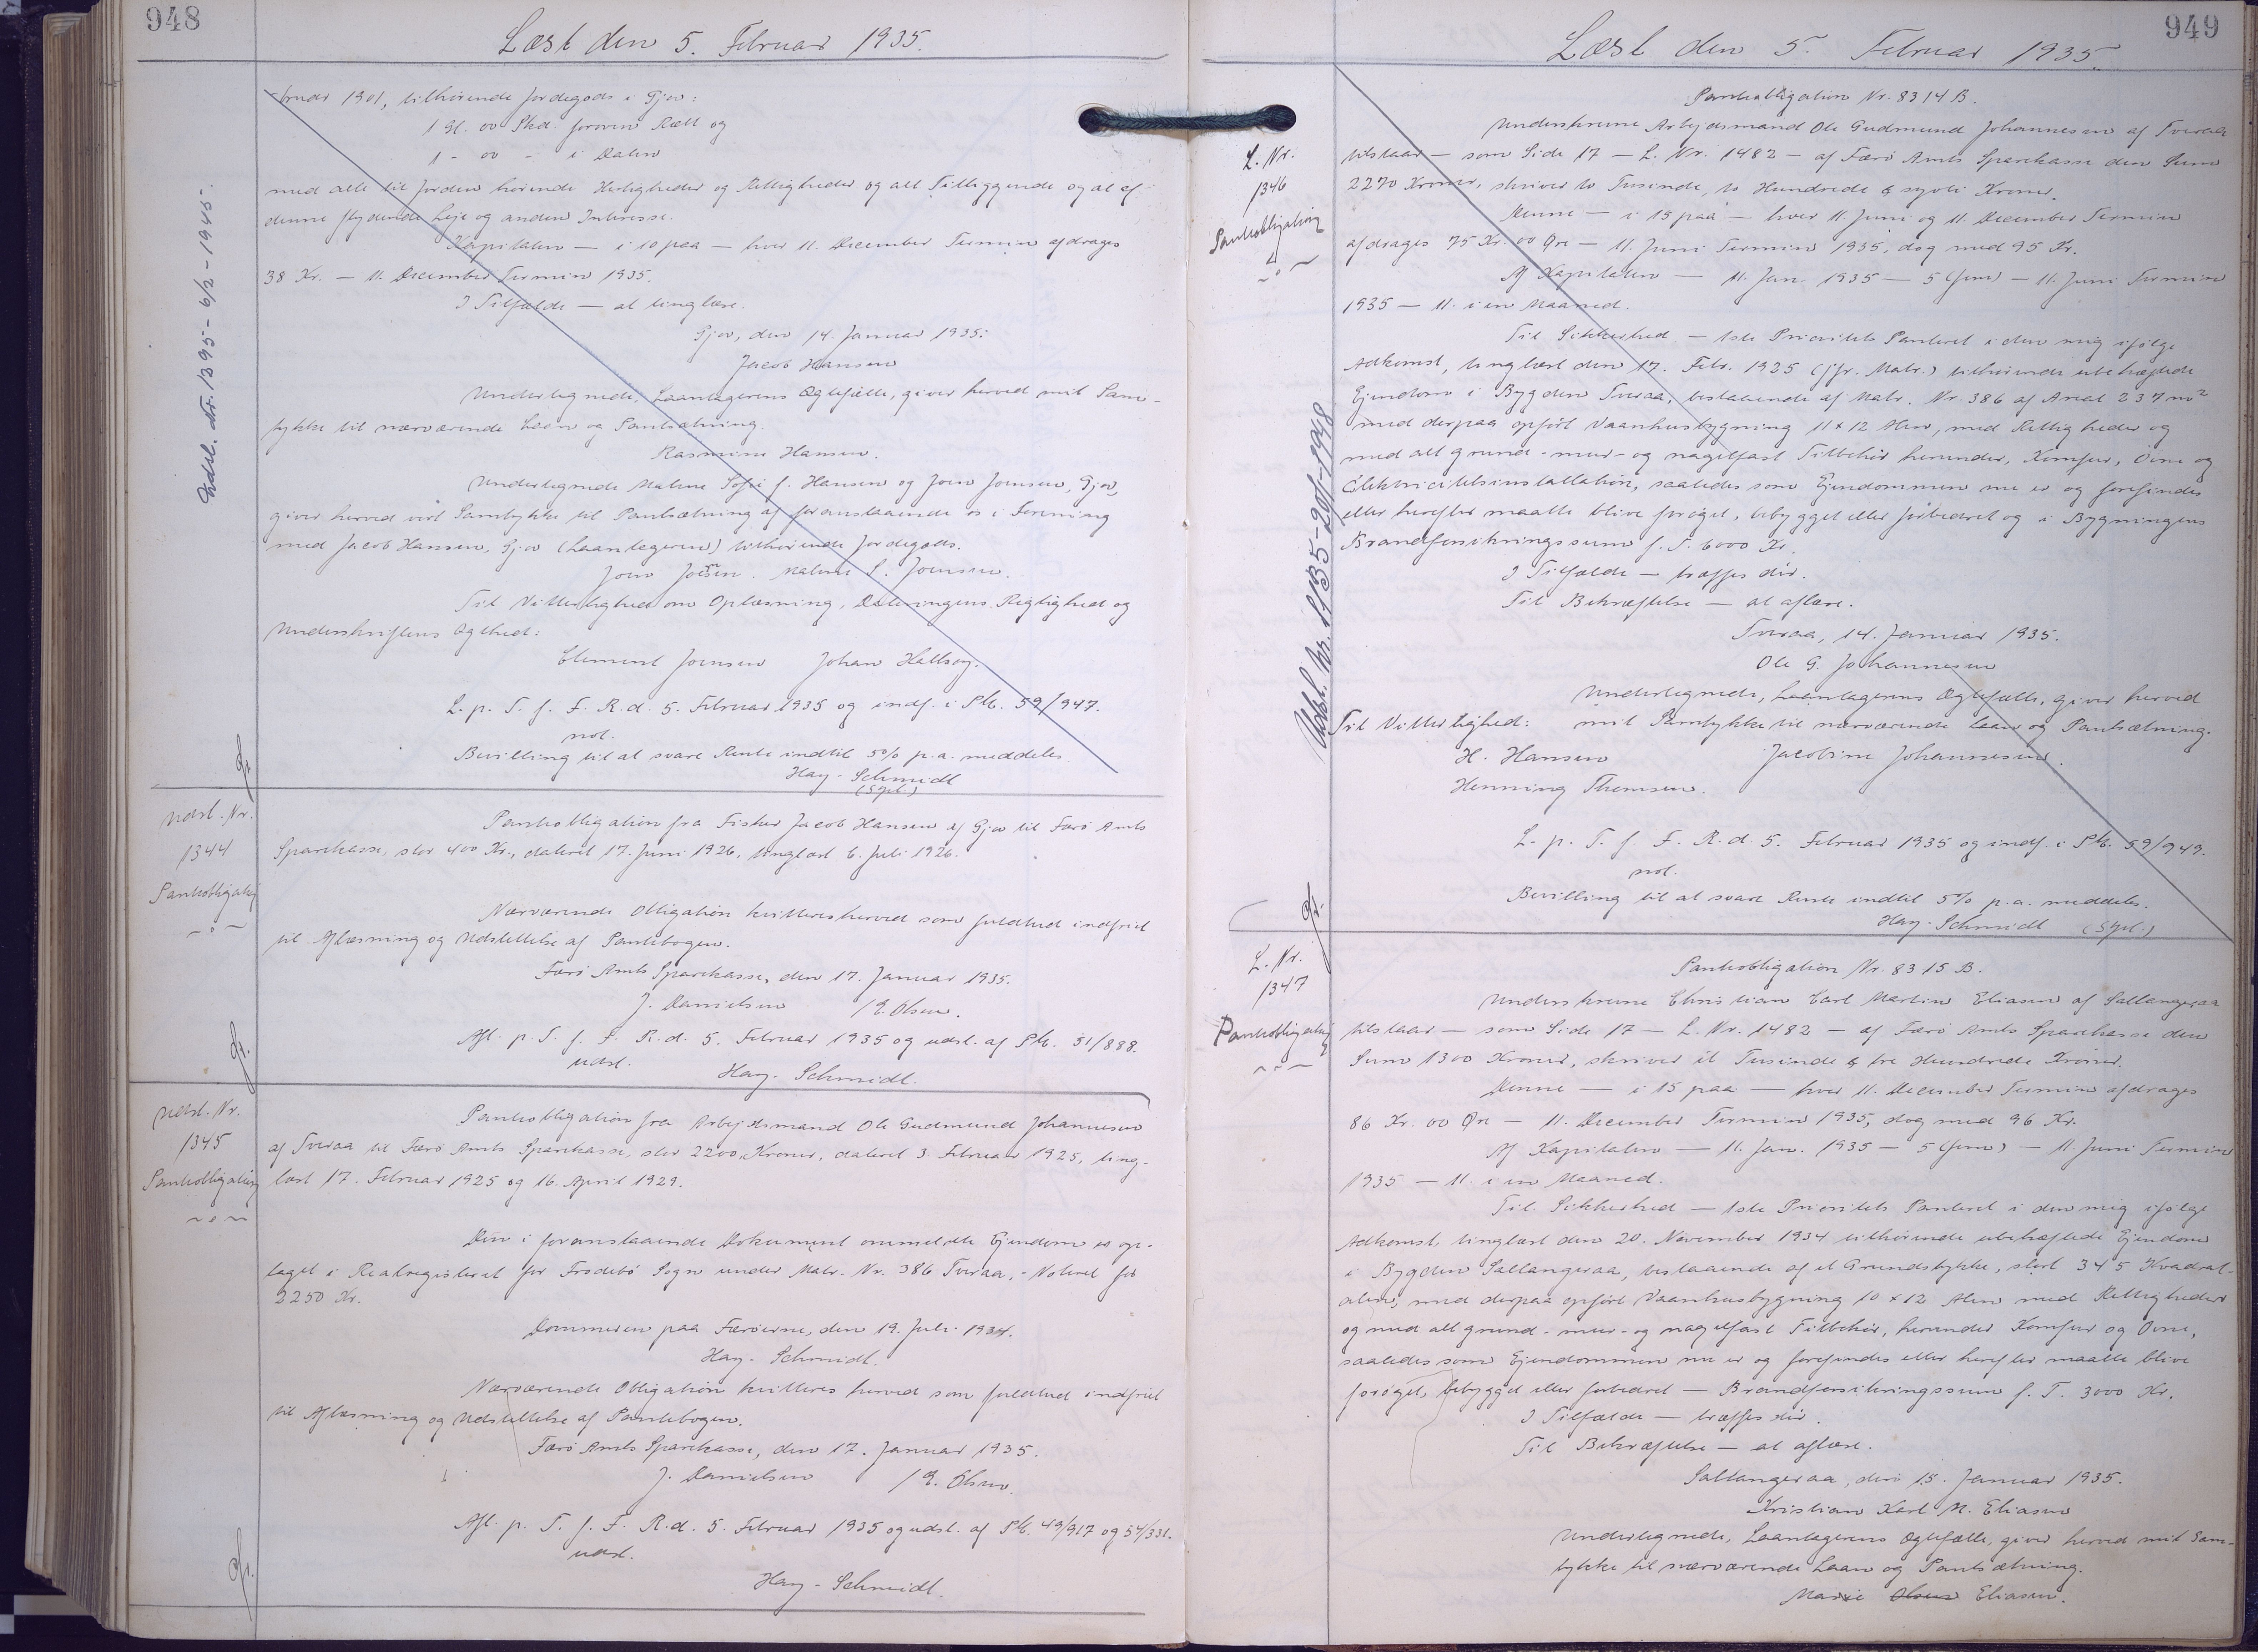 948
Læst den 5. Februar 1935.
bruar 1901, tilhørende Jordegods i Gjov:
1 Gl. 00 Skd. foroven Rætt og
1 - 00 - i Dalen
med alle til Jorden hørende Herligheder og Rettigheder og alt Tilliggende og al af
denne flydende Leje og anden Interesse.
Kapitalen — i 10 paa — hver 11. December Termin afdrages
38 Kr. — 11. December Termin 1935.
I Tilfælde — at tinglæse.
Gjov, den 14. Januar 1935.
Jacob Hansen
Undertegnede, Laantagerens Ægtefælle, giver herved mit Sam-
tykke til nærværende Laan og Pantsætning.
Rasmine Hansen.
Undertegnede Malene Sofie f. Hansen og Joen Joensen, Gjov,
giver herved vort Samtykke til Pantsætning af foranstaaende os i Forening
med Jacob Hansen, Gjov (Laantageren) tilhørende Jordegods.
Joen Joensen. Malene S. Joensen.
Til Vitterlighed om Oplæsning, Dateringens Rigtighed og
Underskriftens Ægthed:
Clement Joensen Johan Hattsøy.
L. p. T. f. F. R. d. 5. Februar 1935 og indf. i Pb. 59/947.
not.
Bevilling til at svare Rente indtil 5% p.a. meddeles.
Hay-Schmidt
(Sgl.)
Udsl. Nr. 1395 - 6/2 - 1945 -
Udsl. Nr.
1344
Pantobligation
Pantobligation fra Fisker Jacob Hansen af Gjov til Færø Amts
Sparekasse, stor 400 Kr., dateret 17. Juni 1926, tinglæst 6. Juli 1926.
Nærværende Obligation kvitteres herved som fuldtud indfriet
til Aflæsning og Udslettelse af Pantebogen.
Færø Amts Sparekasse, den 17. Januar 1935.
J. Danielsen / E. Olsen.
Afl. p. T. f. F. R. d. 5. Februar 1935 og udsl. af Pb. 51/888.
udsl.
Hay-Schmidt.
Udsl. Nr.
1345
Pantobligation
Pantobligation fra Arbejdsmand Ole Gudmund Johannesen
af Tveraa til Færø Amts Sparekasse, stor 2200 Kroner, dateret 3 Februar 1925, ting-
læst 17. Februar 1925 og 16. April 1929.
Den i foranstaaende Dokument ommeldte Ejendom er op-
taget i Realregisteret for Frodebø Sogn under Matr. Nr. 386 Tveraa, - Noteret for
2250 Kr.
Dommeren paa Færøerne, den 19. Juli 1934.
Hay-Schmidt.
Nærværende Obligation kvitteres herved som fuldtud indfriet
til Aflæsning og Udslettelse af Pantebogen.
Færø Amts Sparekasse, den 17. Januar 1935.
J. Danielsen / E. Olsen.
Afl. p. T. f. F. R. d. 5. Februar 1935 og udsl. af Pb. 49/917 og 54/331.
udsl.
Hay-Schmidt.
949
Læst den 5. Februar 1935.
L. Nr.
1346
Pantobligation
Pantobligation Nr. 8314 B.
Underskrevne Arbejdsmand Ole Gudmund Johannesen af Tveraa
tilstaar — som Side 17 — L. Nr. 1482 — af Færø Amts Sparekasse den Sum
2270 Kroner, skriver to Tusinde, to Hundrede & syvti Kroner.
Denne — i 15 paa — hver 11. Juni og 11. December Termin
afdrages 75 Kr. 00 Øre — 11. Juni Termin 1935, dog med 95 Kr.
Af Kapitalen — 11. Jan. 1935 — 5 (fem) — 11. Juni Termin
1935 — 11. i en Maaned.
Til Sikkerhed — 1ste Prioritets Panteret i den mig ifølge
Adkomst, tinglæst den 17. Febr. 1925 (jfr. Matr.) tilhørende ubehæftede
Ejendom i Bygden Tveraa, bestaaende af Matr. Nr. 386 af Areal 237 m²
med derpaa opført Vaanhusbygning 11 x 12 Alen, med Rettigheder og
med alt grund- mur- og nagelfast Tilbehør herunder, Komfur, Ovne og
Elektricitetsinstallation, saaledes som Ejendommen nu er og forefindes
eller herefter maatte blive forøget, bebygget eller forbedret og i Bygningens
Brandforsikringssum f. T. 6000 Kr.
I Tilfælde — træffes dér.
Til Bekræftelse — at aflæse.
Tveraa, 14. Januar 1935.
Ole G. Johannesen
Undertegnede, Laantagerens Ægtefælle, giver herved
mit Samtykke til nærværende Laan og Pantsætning.
Til Vitterlighed:
H. Hansen Jacobine Johannesen.
Henning Thomsen.
L. p. T. f. F. R. d. 5. Februar 1935 og indf. i Pb. 59/949.
not.
Bevilling til at svare Rente indtil 5% p.a. meddeles.
Hay-Schmidt (Sgl.)
Udsl. Nr. 1935 - 20/1 - 1948
L. Nr.
1347
Pantobligation
Pantobligation Nr. 8315 B.
Underskrevne Christian Carl Martin Eliasen af Saltangeraa
tilstaar — som Side 17 — L. Nr. 1482 — af Færø Amts Sparekasse den
Sum 1300 Kroner, skriver et Tusinde & tre Hundrede Kroner.
Denne — i 15 paa — hver 11. December Termin afdrages
86 Kr. 00 Øre — 11. December Termin 1935, dog med 96 Kr.
Af Kapitalen — 11. Jan. 1935 — 5 (fem) — 11. Juni Termin
1935 — 11. i en Maaned.
Til Sikkerhed — 1ste Prioritets Panteret i den mig ifølge
Adkomst, tinglæst den 20. November 1934 tilhørende ubehæftede Ejendom
i Bygden Saltangeraa, bestaaende af et Grundstykke, stort 345 Kvadrat-
alen, med derpaa opført Vaanhusbygning 10 x 12 Alen med Rettigheder
og med alt grund- mur- og nagelfast Tilbehør, herunder Komfur og Ovne,
saaledes som Ejendommen nu er og forefindes eller herefter maatte blive
forøget, bebygget eller forbedret — Brandforsikringssum f. T. 3000 Kr.
I Tilfælde — træffes dér.
Til Bekræftelse — at aflæse.
Saltangeraa, den 15. Januar 1935.
Kristian Karl M. Eliasen
Undertegnede, Laantagerens Ægtefælle, giver herved mit Sam-
tykke til nærværende Laan og Pantsætning.
Marie Olsen Eliasen.